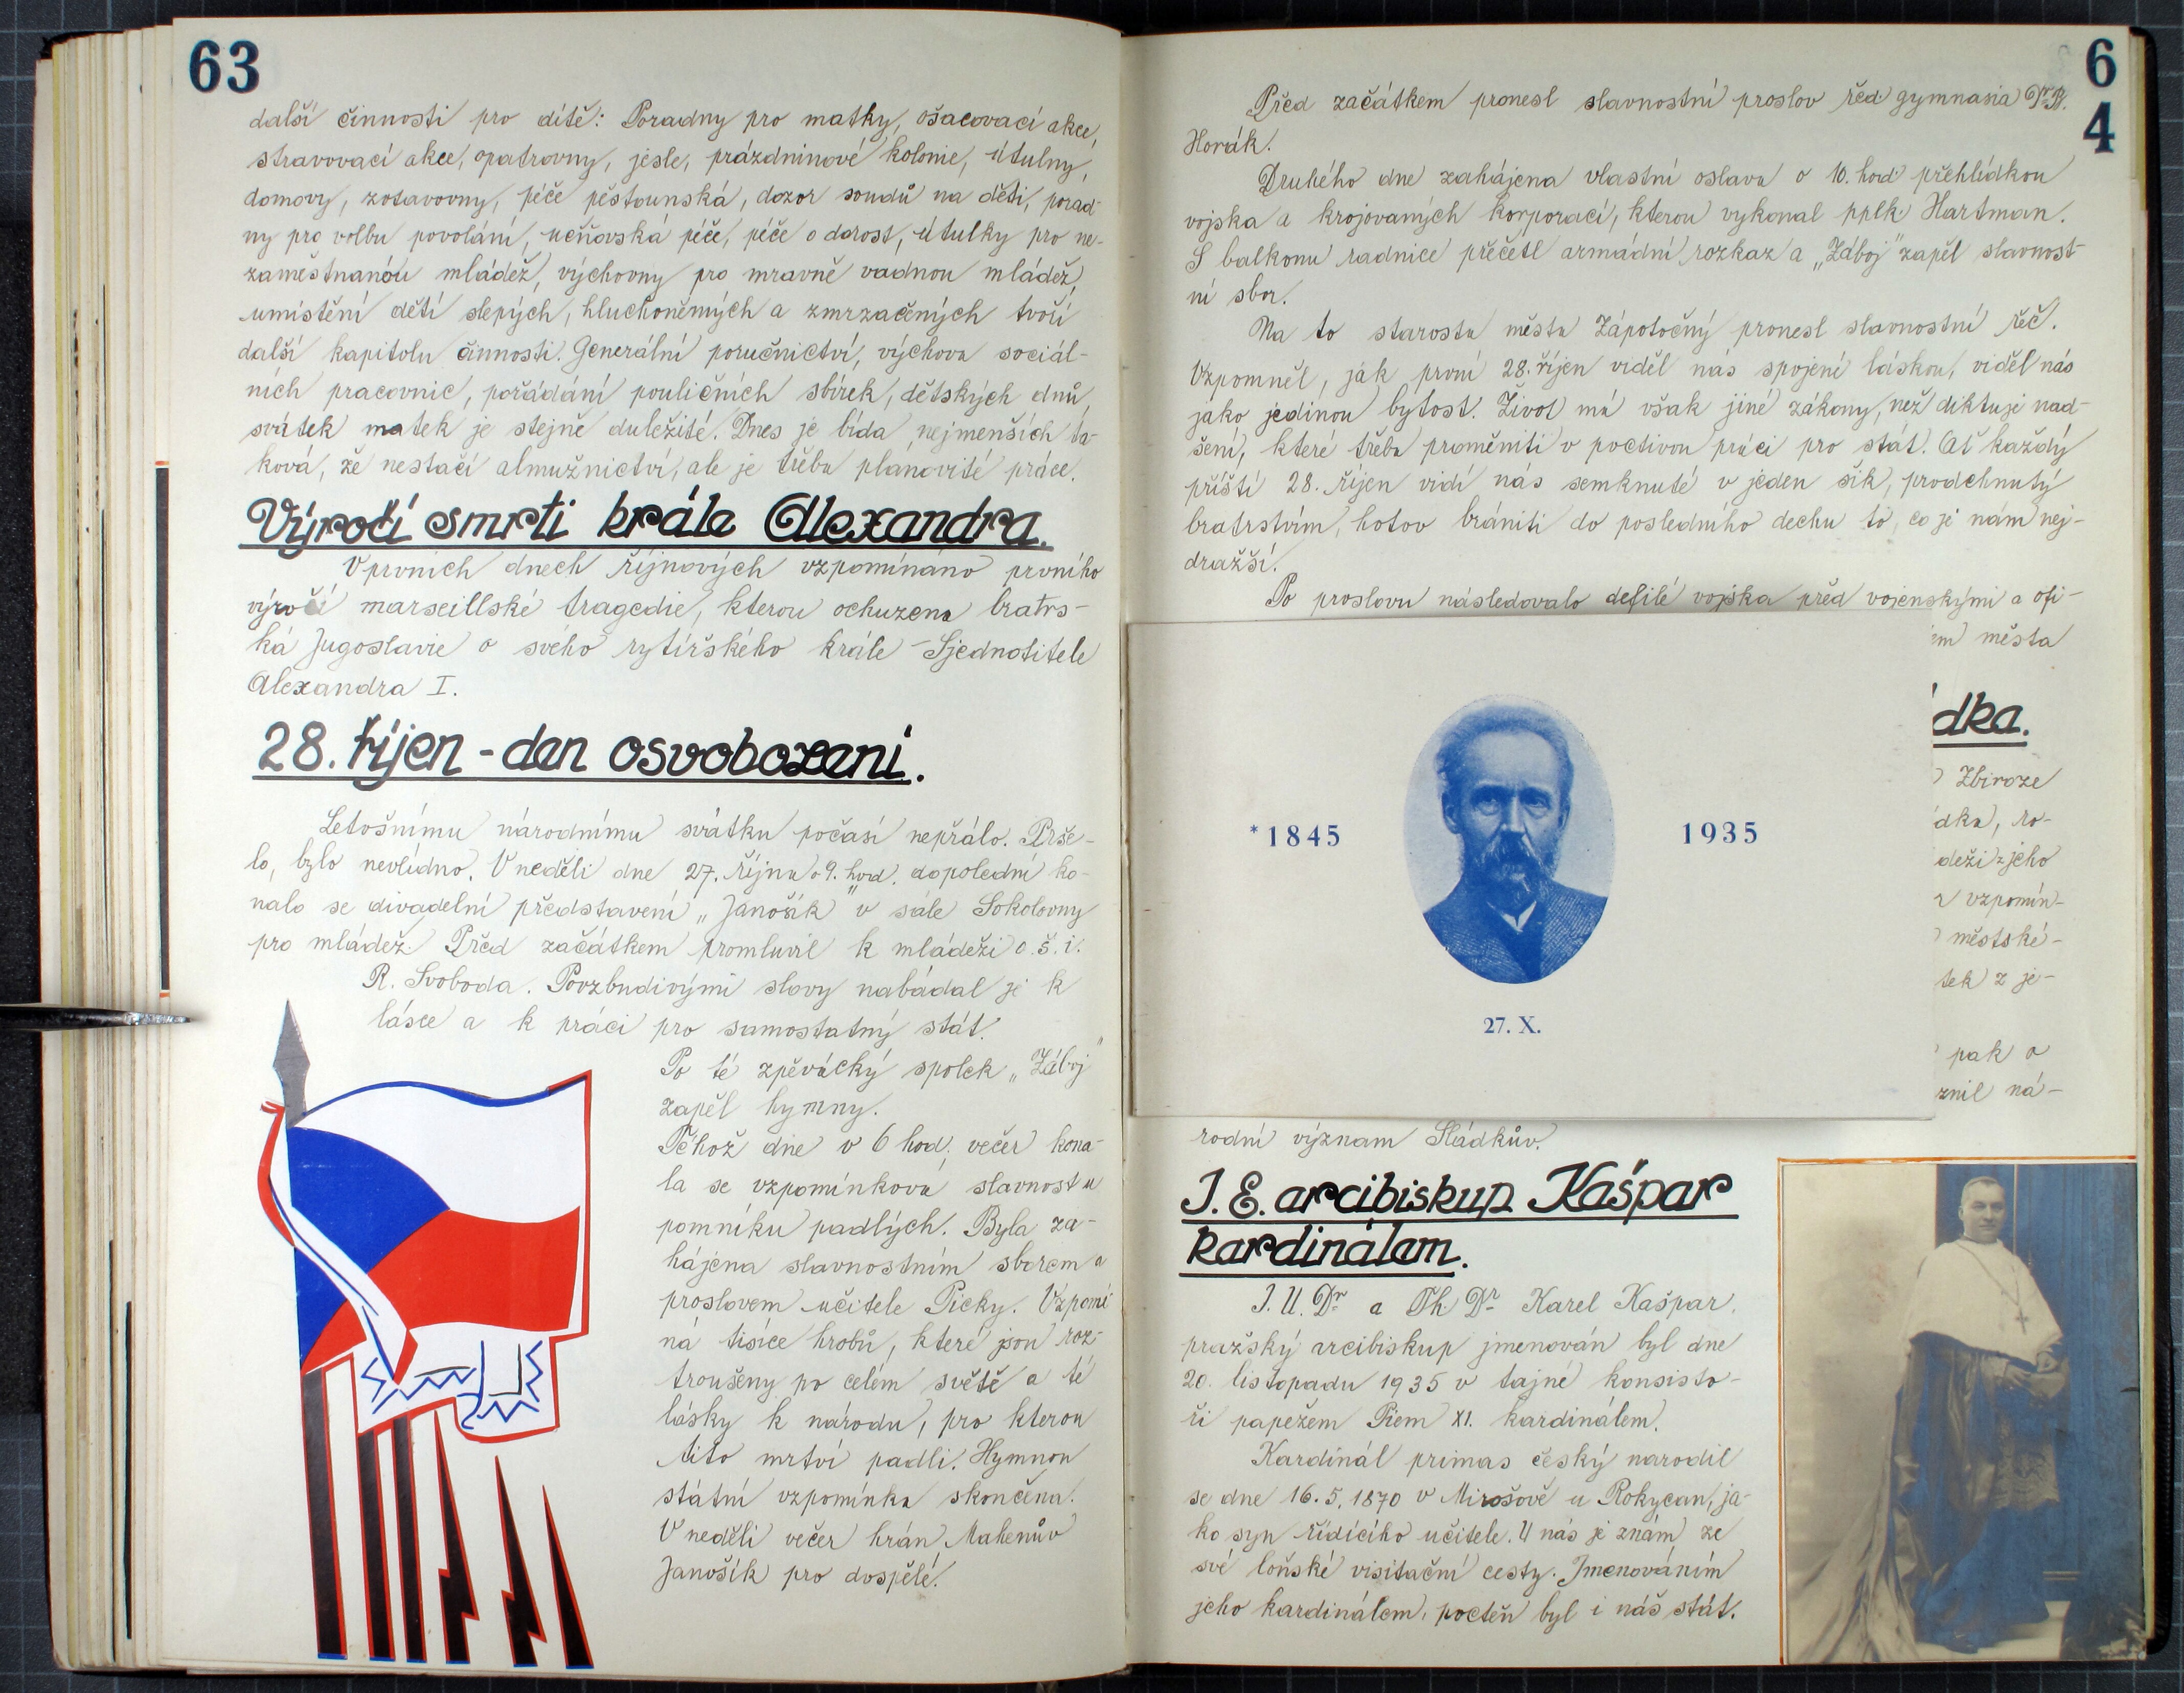 63
další činnosti pro dítě: Poradny pro matky, ošacovací akce,
stravovací akce, opatrovny, jesle, prázdninové kolonie, útulny,
domovy, zotavovny, péče pěstounská, dozor soudů na děti, porad-
ny pro volbu povolání, učňovská péče, péče o dorost, útulky pro ne-
zaměstnanou mládež, výchovny pro mravně vadnou mládež,
umístění dětí slepých, hluchoněmých a zmrzačených tvoří
další kapitolu činnosti. Generální poručnictví, výchova sociál-
ních pracovnic, pořádání pouličních sbírek, dětských dnů,
svátek matek je stejně důležité. Dnes je bída nejmenších ta-
ková, že nestačí almužnictví, ale je třeba plánovité práce.
Výročí smrti krále Alexandra.
V prvních dnech říjnových vzpomínáno prvního
výročí marseillské tragedie, kterou ochuzena bratrs-
ká Jugoslavie o svého rytířského krále - Sjednotitele
Alexandra I.
28. říjen - den osvobození.
Letošnímu národnímu svátku počasí nepřálo. Prše-
lo, bylo nevlídno. V neděli dne 27. října o 9. hod. dopolední ko-
nalo se divadelní představení „Jánošík" v sále Sokolovny
pro mládež. Před začátkem promluvil k mládeži o.š.i.
R. Svoboda. Povzbudivými slovy nabádal je k
lásce a k práci pro samostatný stát.
Po té zpěvácký spolek „Záboj"
zapěl hymny.
Téhož dne v 6 hod. večer kona-
la se vzpomínková slavnost u
pomníku padlých. Byla za-
hájena slavnostním sborem a
proslovem učitele Picky. Vzpomí
ná tisíce hrobů, které jsou roz-
troušeny po celém světě a té
lásky k národu, pro kterou
tito mrtví padli. Hymnou
státní vzpomínka skončena.
V neděli večer hrán Mahenův
Janošík pro dospělé.
6
4
Před začátkem pronesl slavnostní proslov řed. gymnasia Dr.
Horák.
Druhého dne zahájena vlastní oslava o 10. hod. přehlídkou
vojska a krojovaných korporací, kterou vykonal pplk. Hartman.
S balkonu radnice přečetl armádní rozkaz a „Záboj" zapěl slavnost-
ní sbor.
Na to starosta města Zápotočný pronesl slavnostní řeč.
Vzpomněl, ják první 28. říjen viděl nás spojené láskou, viděl nás
jako jedinou bytost. Život má však jiné zákony, než diktuje nad-
šení, které třeba proměniti v poctivou práci pro stát. Ať každý
příští 28. říjen vidí nás semknuté v jeden šik, prodchnutý
bratrstvím, hotov brániti do posledního dechu to, co je nám nej-
dražší.
Po proslovu následovalo defilé vojska před vojenskými a ofi-
ím města
dka.
Zbiroze
dka, ro-
deži z jeho
vzpomín-
městské-
tek z je-
pak o
znil ná-
*1845
1935
27. X.
rodní význam Sládkův.
J. E. arcibiskup Kašpar
kardinálem.
J. U. Dr a Th. Dr Karel Kašpar,
pražský arcibiskup jmenován byl dne
20. listopadu 1935 v tajné konsisto-
ři papežem Piem XI. kardinálem.
Kardinál primas český narodil
se dne 16. 5. 1870 v Mirošově u Rokycan, ja-
ko syn řídícího učitele. U nás je znám ze
své loňské visitační cesty. Jmenováním
jeho kardinálem, poctěn byl i náš stát.